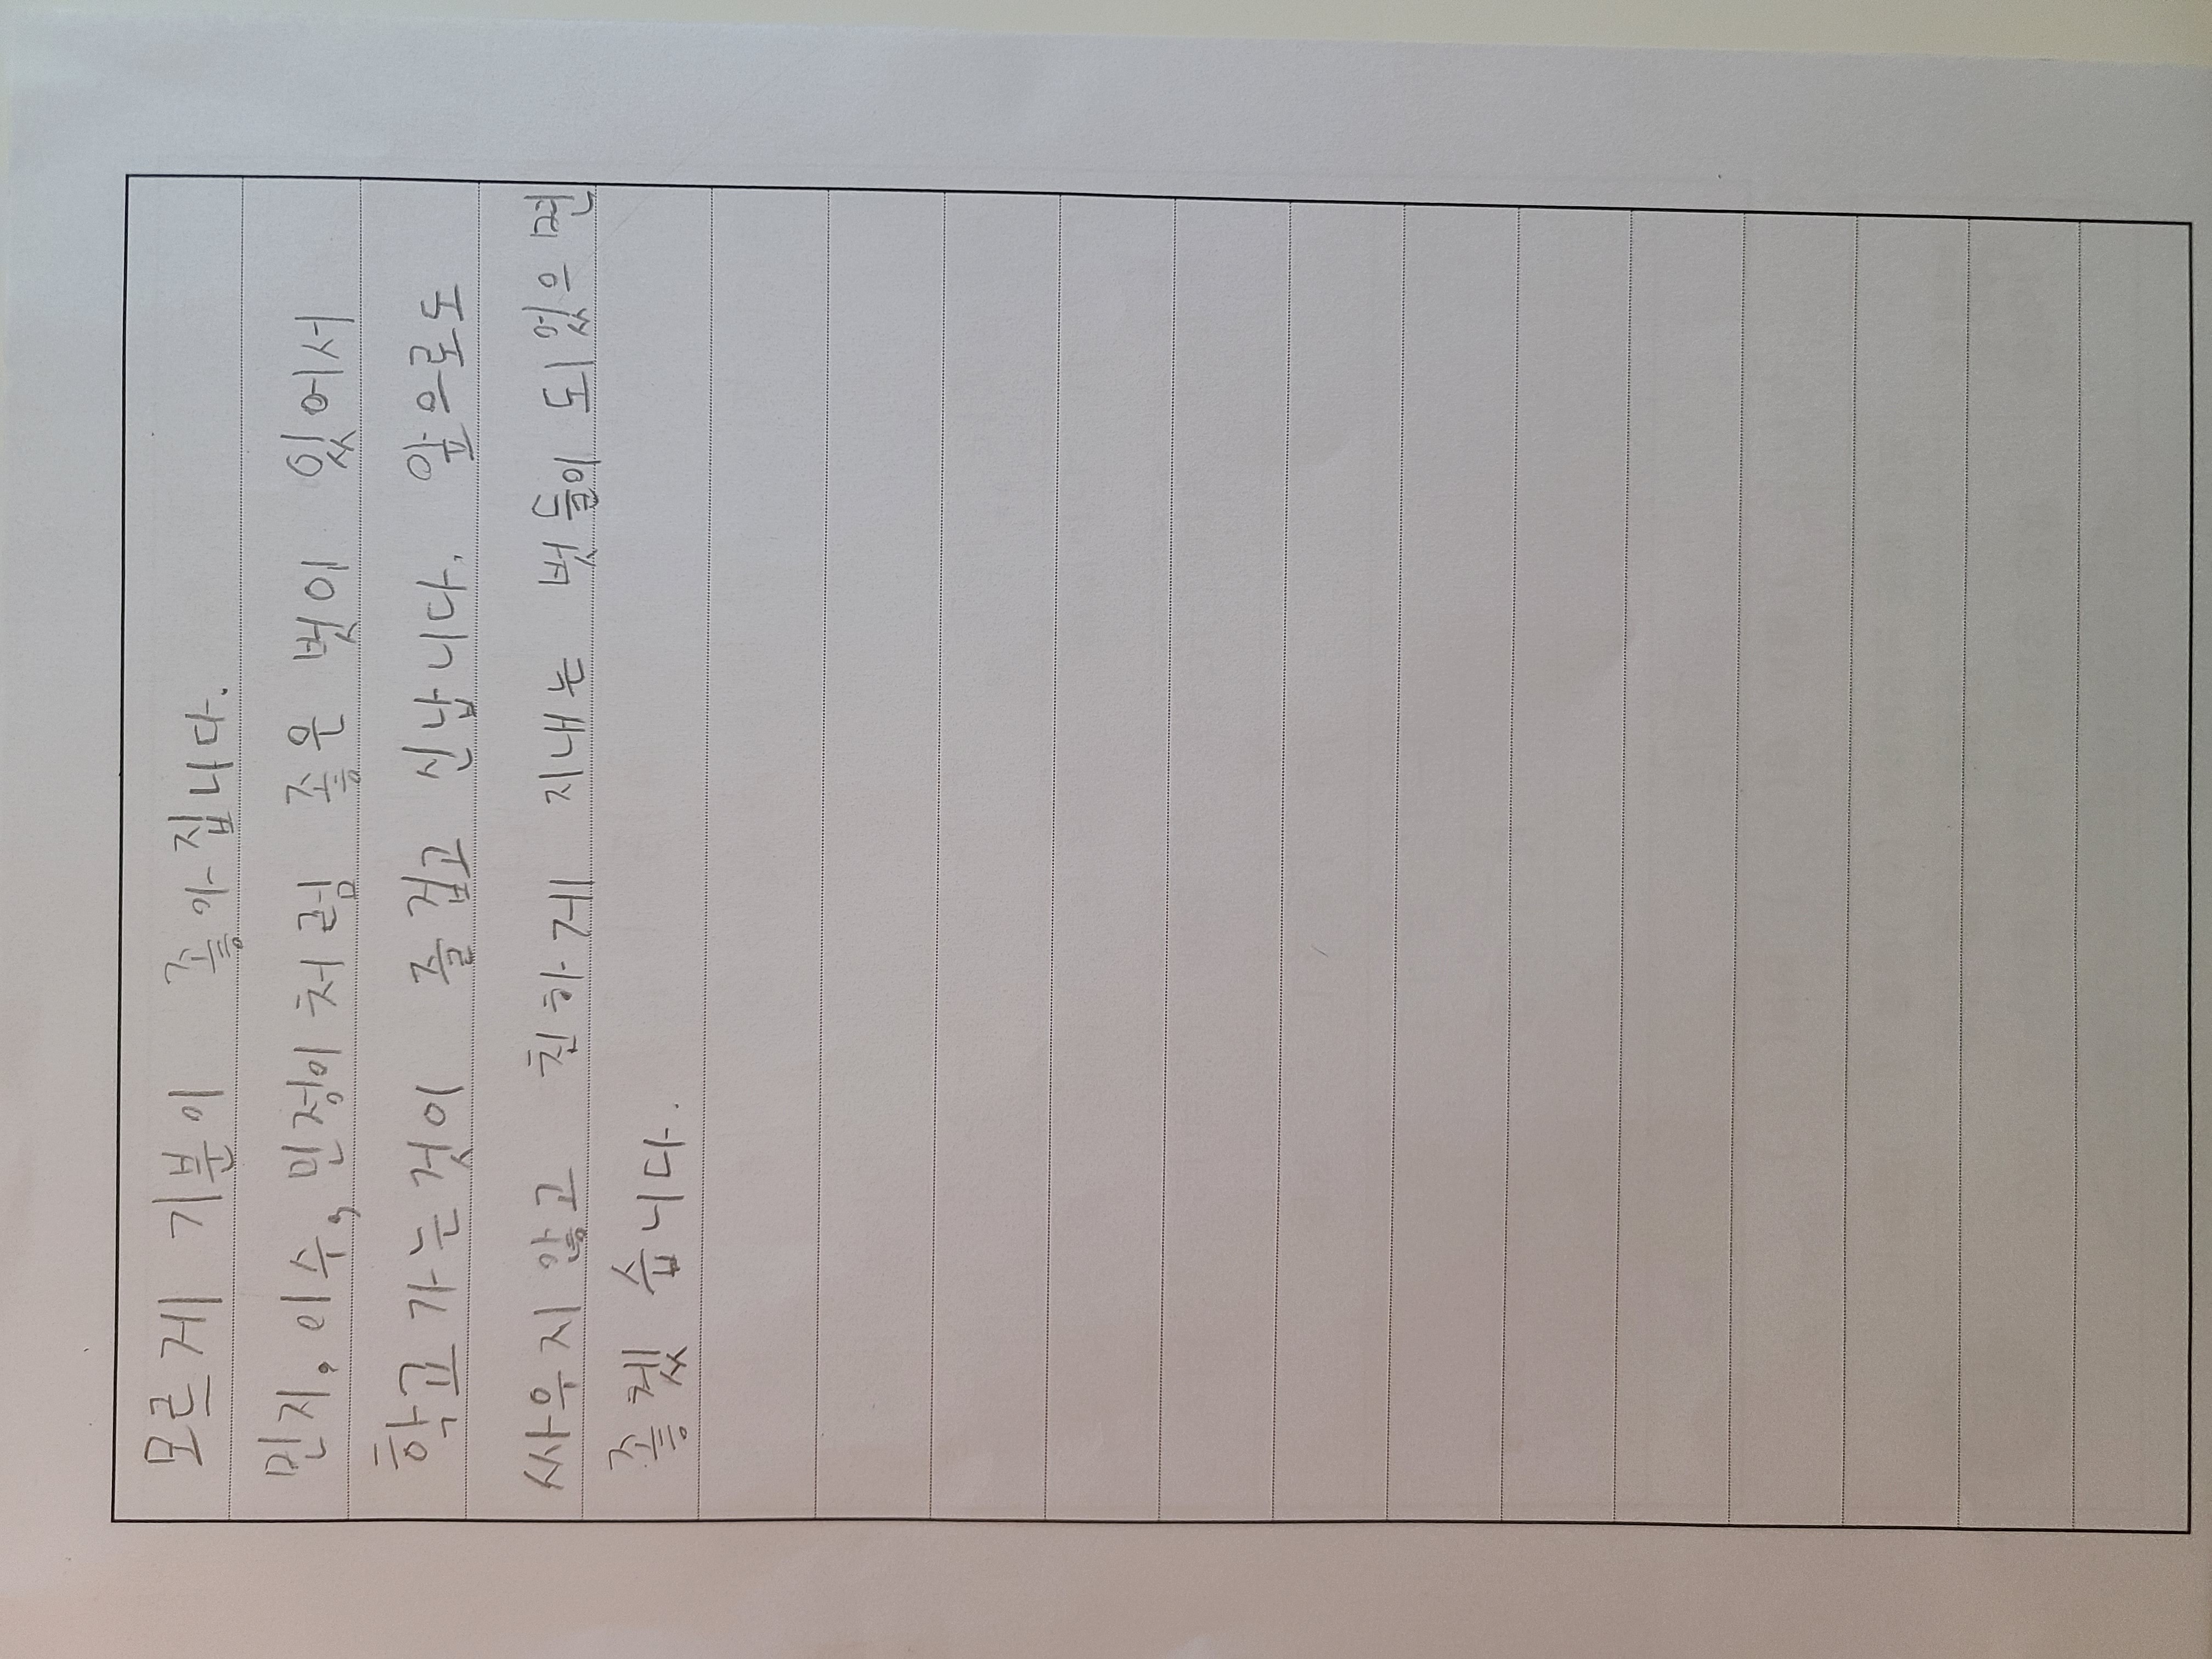 모르게 기분이 좋아집니다.
민지, 이수, 민정이처럼 좋은 벗이 있어서
학교 가는 것이 즐겁고 신납니다. 앞으로도
싸우지 않고 친하게 지내는 벗들이 되었으면
좋겠습니다.